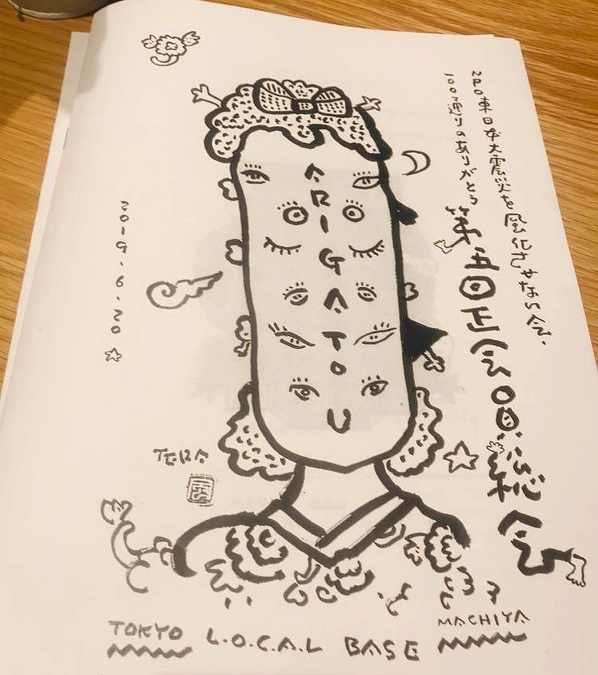 NPO東日本大震災を風化させない会、
100通りのありがとう
第五回正会員総会
ARIGATOU
2019.6.20
TERA
TOKYO L.O.C.A.L BASE
MACHIYA